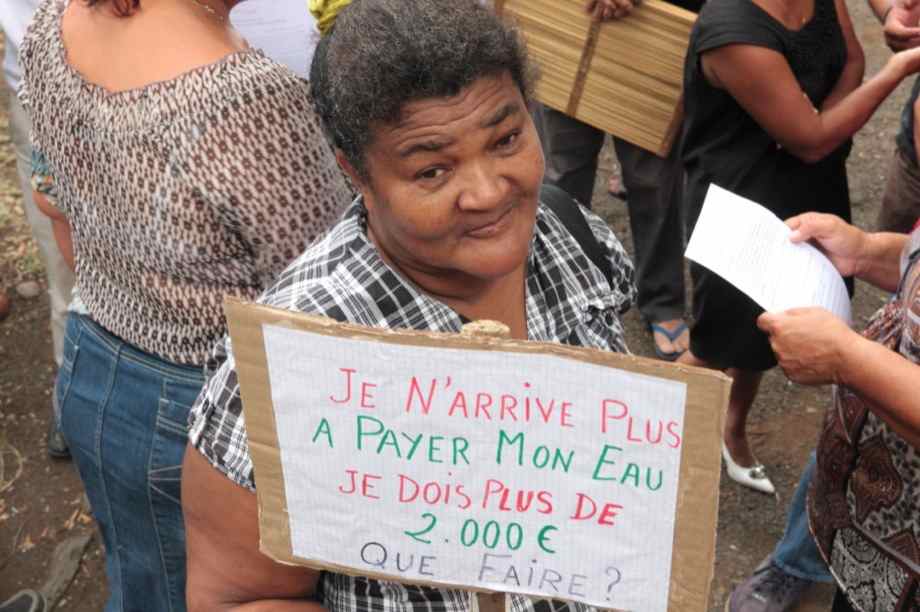 JE N'ARRIVE PLUS
A PAYER MON EAU
JE DOIS PLUS DE
2.000 €
QUE FAIRE ?